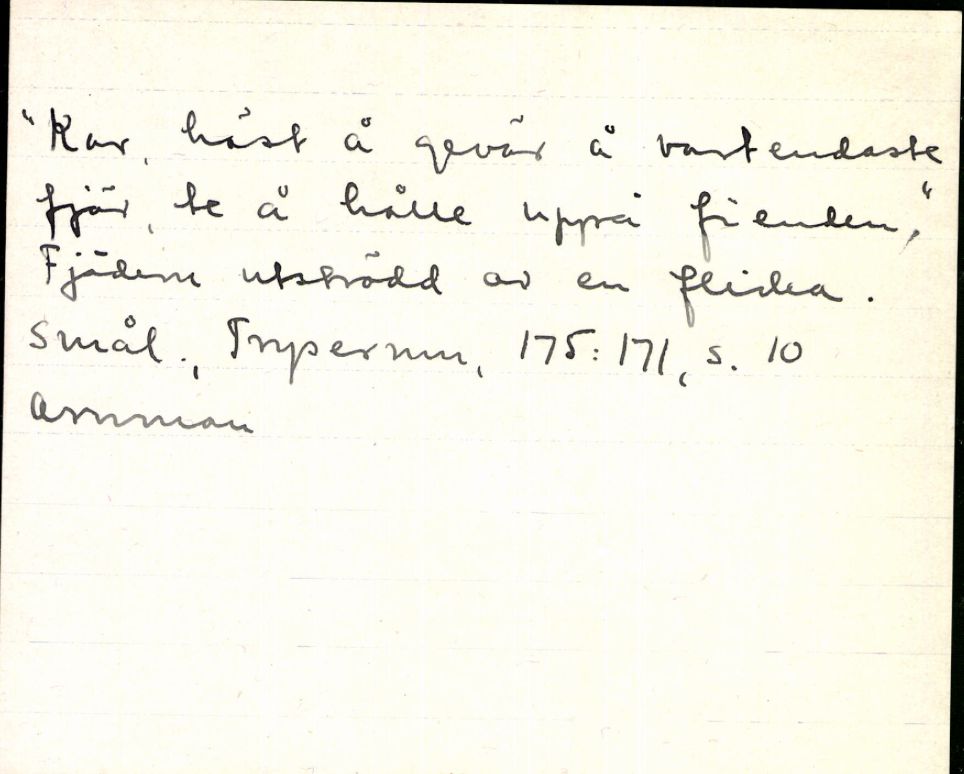 "Kar, häst å gevär å vartendaste
fjär, te å hålle uppå fienden,"
Fjädern utströdd av en flicka.
Smål., Trypernm, 175:171, s. 10